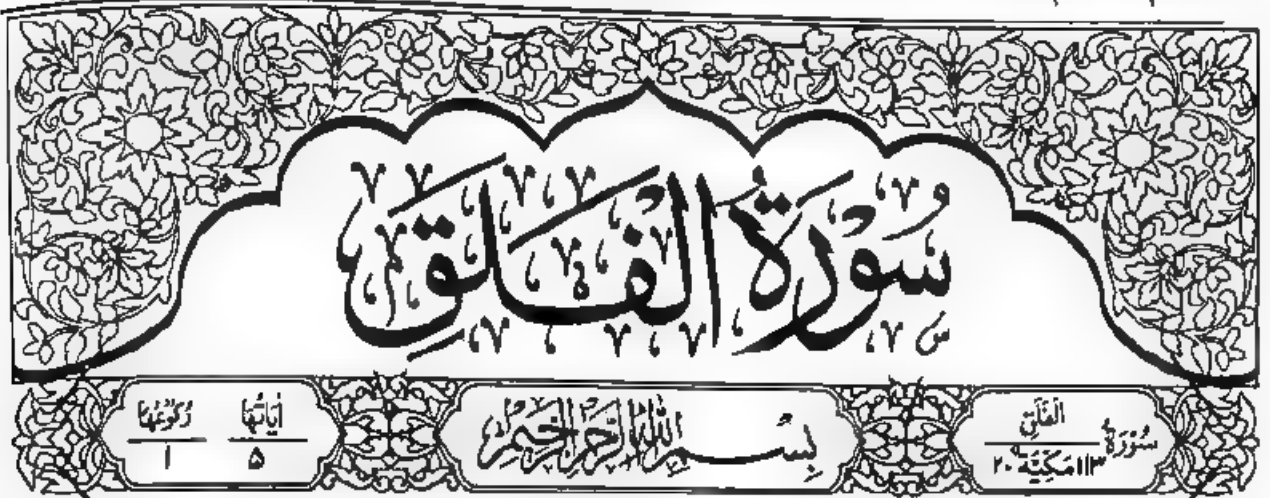 سُوْرَةُ الْفَلَقِ
سُوْرَةُ الْفَلَقِ ١١٣ مَكِّيَّة ٢٠ بِسْمِ اللهِ الرَّحْمٰنِ الرَّحِيْمِ اٰيَاتُهَا ٥ رُكُوْعُهَا ١